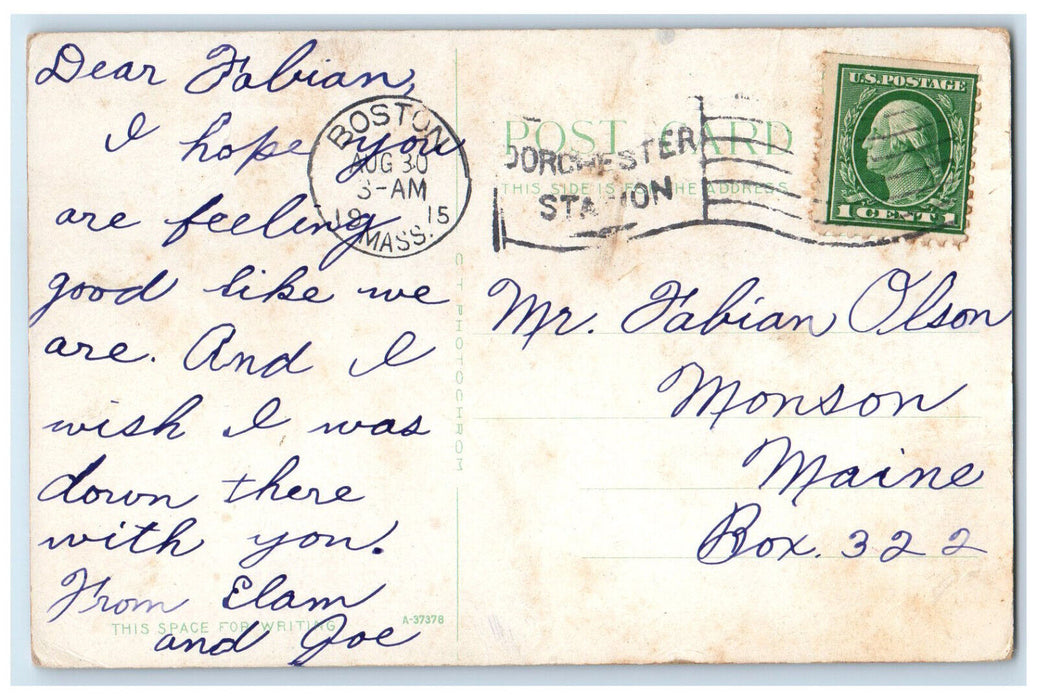 Dear Fabian,
I hope you
are feeling
good like we
are. And I
wish I was
down there
with you.
From Elam
and Joe
THIS SPACE FOR WRITING
A-37378
C T PHOTOCHROM
BOSTON
AUG 30
3-AM
1915
MASS.
POST CARD
THIS SIDE IS FOR THE ADDRESS
DORCHESTER
STATION
U.S. POSTAGE
1 CENT 1
Mr. Fabian Olson
Monson
Maine
Box. 322